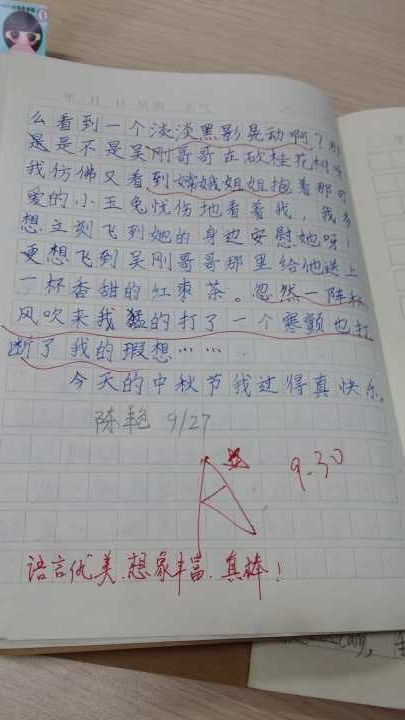 年 月 日 星期 天气
么看到一个淡淡黑影晃动啊?那
是是不是吴刚哥哥在砍桂花树呀
我仿佛又看到嫦娥姐姐抱着那可
爱的小玉兔忧伤地看着我，我多
想立刻飞到她的身边安慰她呀！
更想飞到吴刚哥哥那里给他送上
一杯香甜的红枣茶。忽然一阵秋
风吹来我猛的打了一个寒颤也打
断了我的瑕想……
今天的中秋节我过得真快乐。
陈艳 9/27
9.30
语言优美.想象丰富.真棒！